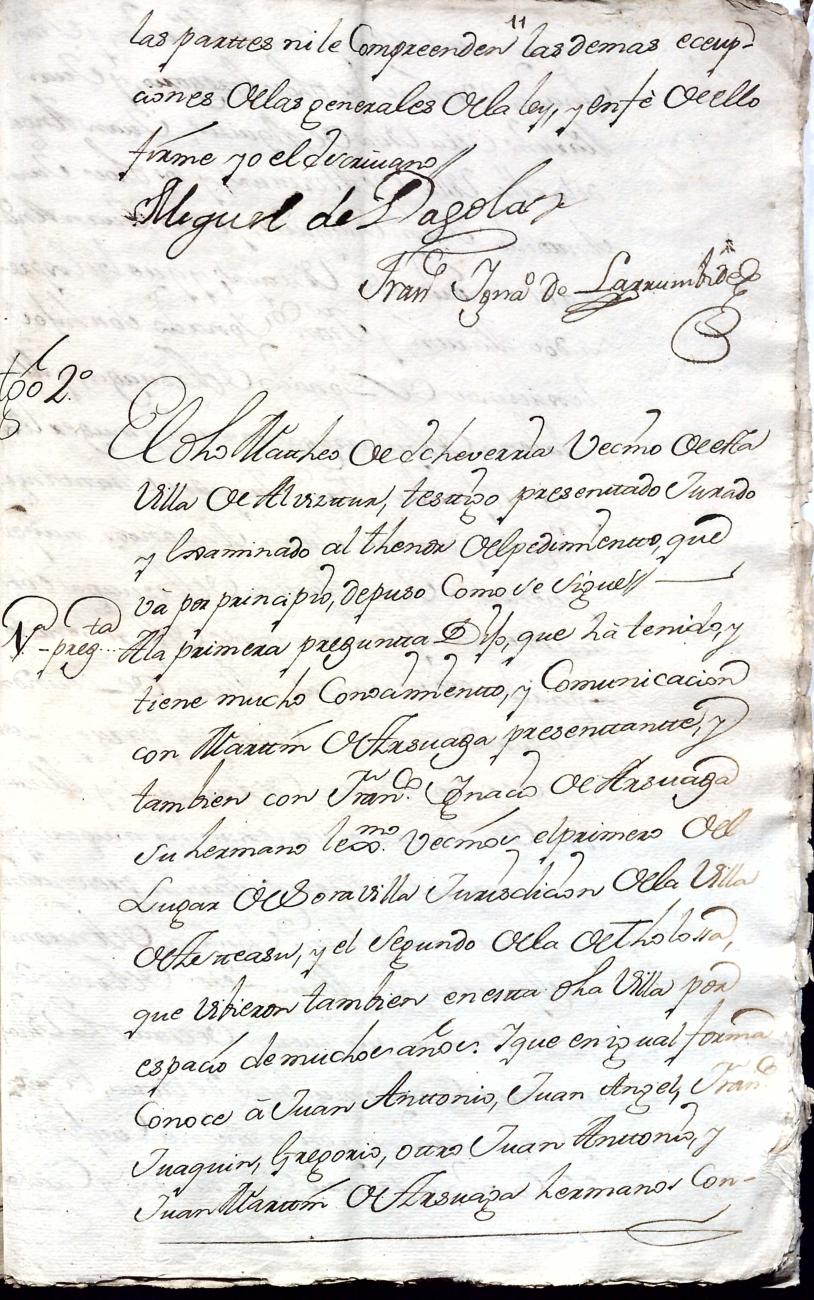 11
las parttes ni le Compreenden las demas eceup-
ciones de las generales de la ley, y en fè de ello
firme yo el Escrivano
Miguel de Dagola
Fran.co Igna.o de Larrumbide
tgo 2.o
El dho Matheo de Echeverria Vecino de esta
Villa de Alvizttur, testigo presenttado Jurado
y Exsaminado al thenor del pedimientto, que
và por principio, depuso Como se sigue
1.a preg.ta A la primera pregunta Dijo, que hà tenido, y
tiene mucho Conocimientto, y Comunicacion
con Marttin de Arsuaga presenttantte, y
tambien con Fran.co Ignacio de Arsuaga
su hermano lexmo. Vecinos el primero del
Lugar de Soravilla Jurisdicion de la Villa
de Asteasu, y el segundo de la de Tholossa,
que vibieron tambien en estta dha Villa por
espacio de muchos años. Y que en igual forma
Conoce à Juan Anttonio, Juan Angel, Fran.co
Juaquin, Gregorio, ottro Juan Anttonio, y
Juan Marttin de Arsuaga hermanos Con-